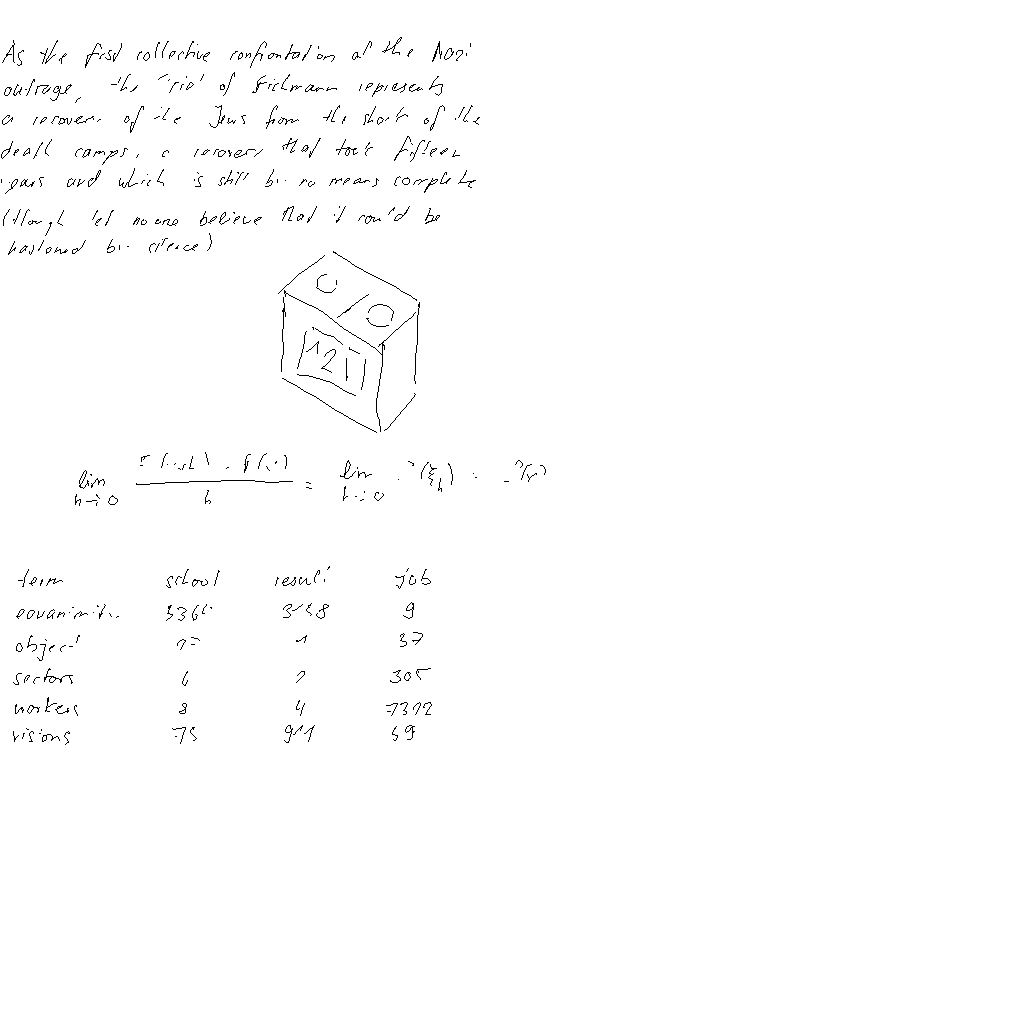 As the first collective confrontation of the Nazi
outrage, the trial of Eichmann represents
a recovery of the Jews from the shock of the
death camps, a recovery that took fifteen
years and which is still by no means complete
(though let no one believe that it could be
hastened by silence)
12
lim = lim
h→0 h h→0
term school result job
equanimity 9
object 1 37
sectors 6 305
workers 8 4
visions 75 911 59